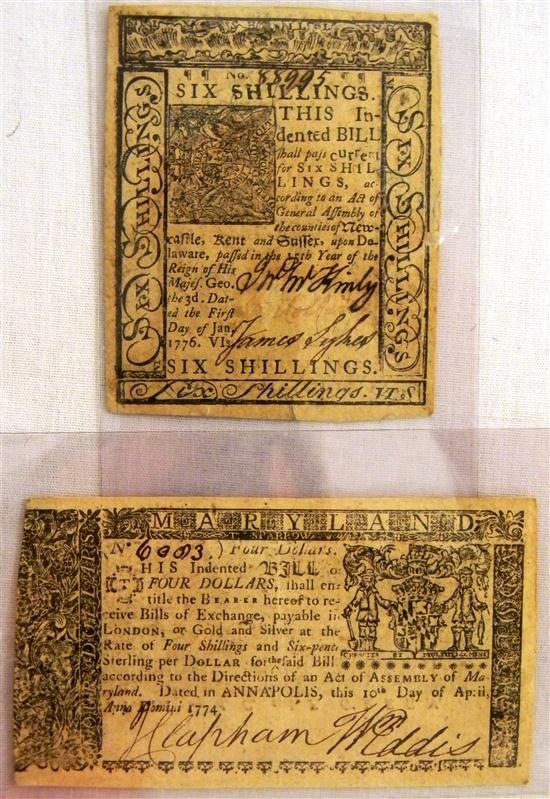 No. 88995
SIX SHILLINGS.
THIS In-
dented BILL
shall pass current
for SIX SHIL
LINGS, ac-
cording to an Act of
General Assembly of
the counties of New-
castle, Kent and Sussex, upon De-
laware, passed in the 15th Year of the
Reign of His
Majes. Geo.
the 3d. Dat-
ed the First
Day of Jan.
1776. VI s
Jno McKinly
James Sykes
SIX SHILLINGS.
Six Shillings. VI.s
SIX SHILLINGS
SIX SHILLINGS
MARYLAND
No. 6003.) Four Dollars.
THIS Indented BILL of
FOUR DOLLARS, shall en-
title the BEARER hereof to re-
ceive Bills of Exchange, payable in
LONDON, or Gold and Silver at the
Rate of Four Shillings and Six-pence
Sterling per DOLLAR for the said Bill
according to the Directions of an Act of ASSEMBLY of Ma-
ryland. Dated in ANNAPOLIS, this 10th Day of April,
Anno Domini 1774
J Clapham Wm Eddis